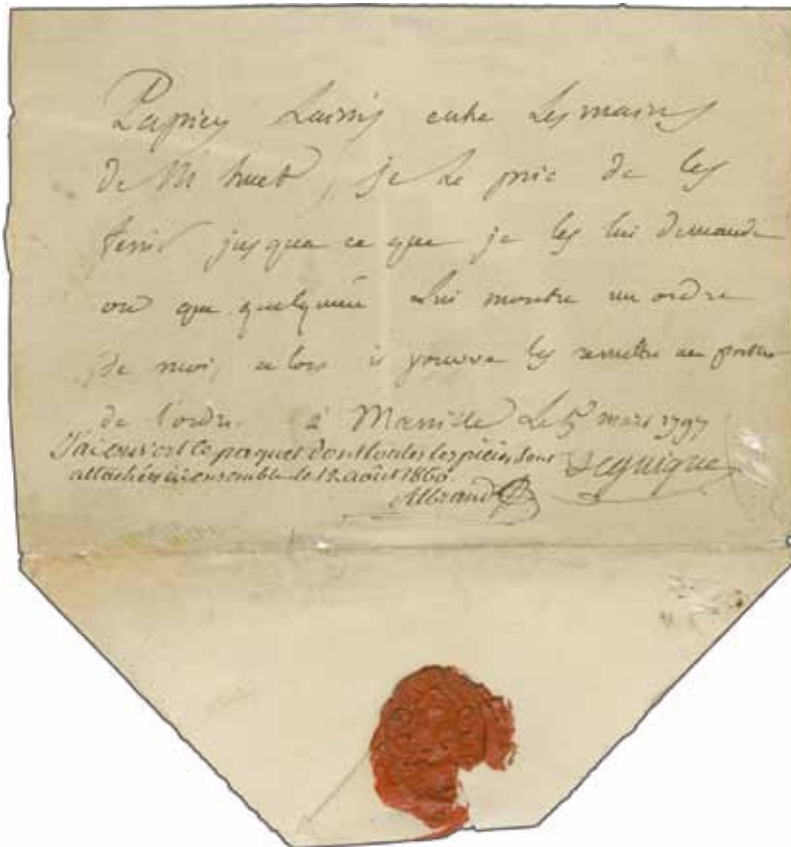 Papiers Laissés entre Les mains
de M huet, je Le prie de les
tenir jusqua ce que je les lui demande
ou que quelqu'un Lui montre un ordre
de moi, alors il pourra les remettre au porteur
de l'ordre. à Manille Le 5 mars 1797
J'ai ouvert ce paquet dont toutes les pièces sont
attachées ici ensemble le 12 août 1860.